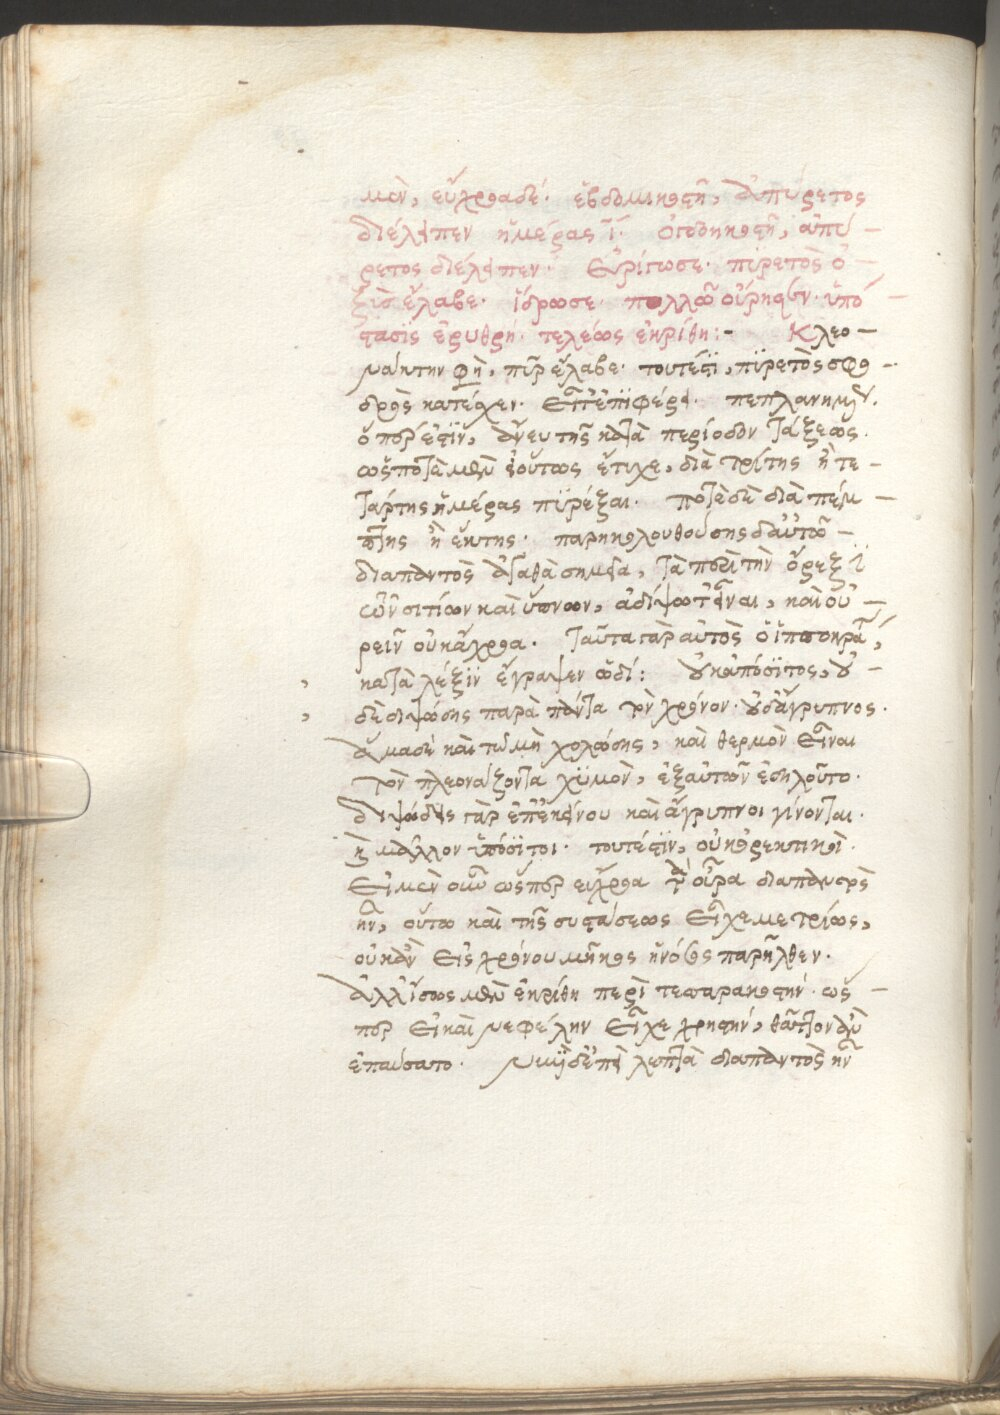 μὸν, εὔχροα δέ· ἑβδομηκοστῆ, ἀπύρετος
διέλειπεν ἡμέρας ϊ· ὀγδοηκοστῆ, ἀπύ –
ρετος διέλειπεν· ἐρίγωσε· πϋρετὸς ὀ –
ξὺς ἔλαβε· ἵδρωσε πολλῶ οὔρησεν· ὑπό –
στασϊς ἐρυθρή· τελέως ἐκρίθη :- Κλεο –
νάκτην φησὶ, πῦρ ἔλαβε· τουτέστϊ, πϋρετὸς σφο –
δρὸς κατέσχεν· εἶτ' ἐπϊφέρει· πεπλανημένον·
ὅπερ ἐστϊν, ἄνευ τῆς κατὰ περίοδον τάξεως·
ὡς ποτὲ μὲν οὕτως ἔτυχε, διὰ τρίτης ἢ τε –
τάρτης ἡμέρας πϋρέξαι· ποτὲ δὲ διὰ πέμ –
πτης ἢ ἕκτης· παρηκολουθούσης δ' αὐτῶ –
διαπαντὸς ἀγαθὰ σημεῖα, τὰ περὶ τὴν ὄρεξϊν
τῶν σιτίων καὶ ὕπνων, ἄδιψών τ' εἶναι, καὶ οὐ –
ρεῖν οὐκ ἄχροα· ταῦτα γὰρ αὐτὸς ὁ ἱπποκράτης,
κατὰ λέξϊν ἔγραψεν ὧδί: οὐκ ἀπόσϊτος, οὐ –
δὲ διψώδης παρὰ πάντα τὸν χρόνον· οὐδ' ἄγρυπνος·
ἅμα δὲ καὶ τὸ μὴ χολώδης, καὶ θερμὸν εἶναι
τὸν πλεονάζοντα χϋμὸν, ἐξ αὐτῶν ἐδηλοῦτο·
διψώδεις γὰρ ἐπ' ἐκείνου καὶ ἄγρυπνοι γίνονται·
καὶ μᾶλλον ἀπόσϊτοι· τουτέστϊν, οὐκ ὀρεκτικοὶ·
εἰ μὲν οὖν ὥσπερ εὔχροα τὰ οὖρα διαπαντὸς
ἦν, οὕτω καὶ τῆς συστάσεως εἶχε μετρίως,
οὐκ ἂν εἰς χρόνου μῆκος ἡ νόσος παρῆλθεν·
ἀλλ' ἴσως μὲν ἐκρίθη περὶ τεσσαρακοστήν· ὥς –
περ εἰ καὶ νεφέλην εἶχε χρηστήν, θᾶττον ἂν
ἐπαύσατο· νυνϊ δ' ἐπεὶ λεπτὰ διαπαντὸς ἦν